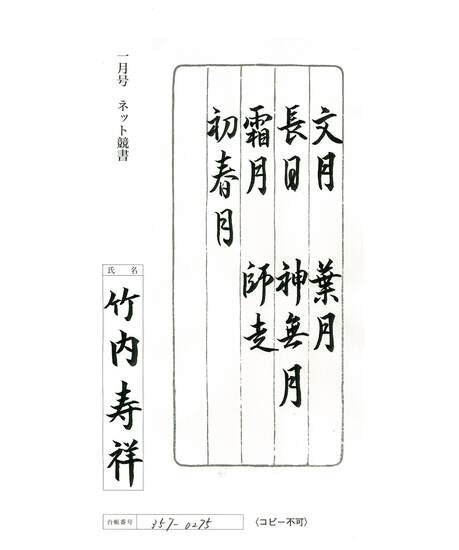 文月　葉月
長月　神無月
霜月　師走
初春月
一月号　ネット競書
氏名
竹内寿祥
台帳番号　357-0275
〈コピー不可〉